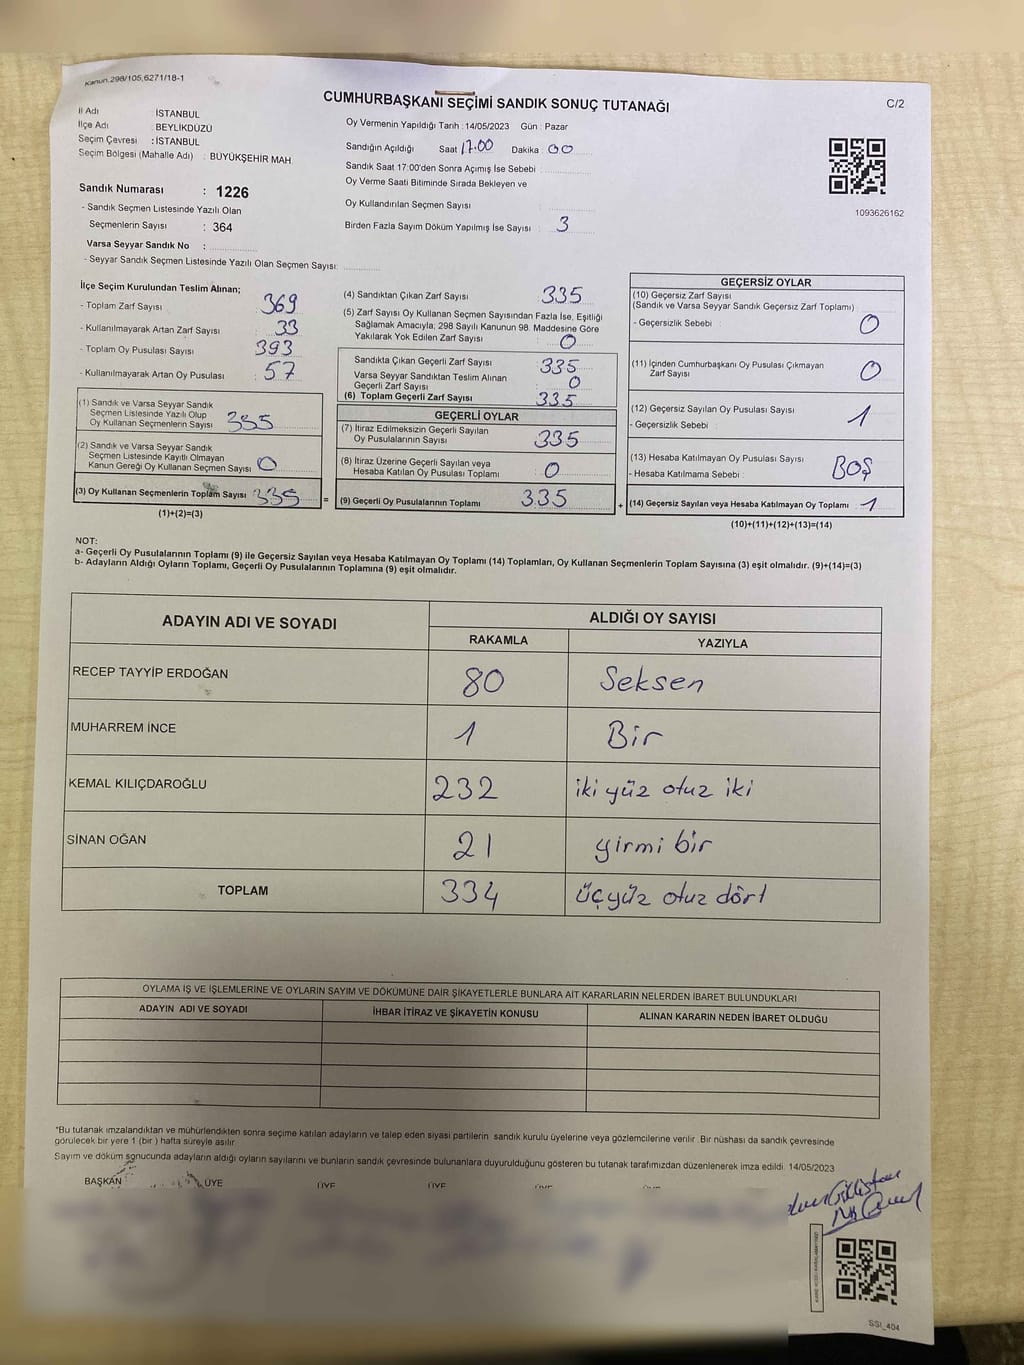 Kanun.298/105,6271/18-1
CUMHURBAŞKANI SEÇİMİ SANDIK SONUÇ TUTANAĞI
C/2
İl Adı : İSTANBUL
İlçe Adı : BEYLİKDÜZÜ
Seçim Çevresi : İSTANBUL
Seçim Bölgesi (Mahalle Adı) : BÜYÜKŞEHİR MAH.
Sandık Numarası : 1226
- Sandık Seçmen Listesinde Yazılı Olan
Seçmenlerin Sayısı : 364
Varsa Seyyar Sandık No :
- Seyyar Sandık Seçmen Listesinde Yazılı Olan Seçmen Sayısı:
Oy Vermenin Yapıldığı Tarih : 14/05/2023 Gün : Pazar
Sandığın Açıldığı Saat 17.00 Dakika : 00
Sandık Saat 17:00'den Sonra Açımış İse Sebebi :
Oy Verme Saati Bitiminde Sırada Bekleyen ve
Oy Kullandırılan Seçmen Sayısı :
Birden Fazla Sayım Döküm Yapılmış İse Sayısı : 3
1093626162
İlçe Seçim Kurulundan Teslim Alınan;
- Toplam Zarf Sayısı : 369
- Kullanılmayarak Artan Zarf Sayısı : 33
- Toplam Oy Pusulası Sayısı : 393
- Kullanılmayarak Artan Oy Pusulası : 57
(1) Sandık ve Varsa Seyyar Sandık
Seçmen Listesinde Yazılı Olup
Oy Kullanan Seçmenlerin Sayısı : 335
(2) Sandık ve Varsa Seyyar Sandık
Seçmen Listesinde Kayıtlı Olmayan
Kanun Gereği Oy Kullanan Seçmen Sayısı : 0
(3) Oy Kullanan Seçmenlerin Toplam Sayısı : 335
(1)+(2)=(3)
=
(4) Sandıktan Çıkan Zarf Sayısı : 335
(5) Zarf Sayısı Oy Kullanan Seçmen Sayısından Fazla İse, Eşitliği
Sağlamak Amacıyla; 298 Sayılı Kanunun 98. Maddesine Göre
Yakılarak Yok Edilen Zarf Sayısı : 0
Sandıkta Çıkan Geçerli Zarf Sayısı : 335
Varsa Seyyar Sandıktan Teslim Alınan
Geçerli Zarf Sayısı : 0
(6) Toplam Geçerli Zarf Sayısı : 335
GEÇERLİ OYLAR
(7) İtiraz Edilmeksizin Geçerli Sayılan
Oy Pusulalarının Sayısı : 335
(8) İtiraz Üzerine Geçerli Sayılan veya
Hesaba Katılan Oy Pusulası Toplamı : 0
(9) Geçerli Oy Pusulalarının Toplamı : 335
+
GEÇERSİZ OYLAR
(10) Geçersiz Zarf Sayısı
(Sandık ve Varsa Seyyar Sandık Geçersiz Zarf Toplamı) :
- Geçersizlik Sebebi : 0
(11) İçinden Cumhurbaşkanı Oy Pusulası Çıkmayan
Zarf Sayısı : 0
(12) Geçersiz Sayılan Oy Pusulası Sayısı : 1
- Geçersizlik Sebebi :
(13) Hesaba Katılmayan Oy Pusulası Sayısı :
- Hesaba Katılmama Sebebi : BOŞ
(14) Geçersiz Sayılan veya Hesaba Katılmayan Oy Toplamı : 1
(10)+(11)+(12)+(13)=(14)
NOT:
a- Geçerli Oy Pusulalarının Toplamı (9) ile Geçersiz Sayılan veya Hesaba Katılmayan Oy Toplamı (14) Toplamları, Oy Kullanan Seçmenlerin Toplam Sayısına (3) eşit olmalıdır. (9)+(14)=(3)
b- Adayların Aldığı Oyların Toplamı, Geçerli Oy Pusulalarının Toplamına (9) eşit olmalıdır.
ADAYIN ADI VE SOYADI
ALDIĞI OY SAYISI
RAKAMLA YAZIYLA
RECEP TAYYİP ERDOĞAN 80 Seksen
MUHARREM İNCE 1 Bir
KEMAL KILIÇDAROĞLU 232 iki yüz otuz iki
SİNAN OĞAN 21 yirmi bir
TOPLAM 334 üçyüz otuz dört
OYLAMA İŞ VE İŞLEMLERİNE VE OYLARIN SAYIM VE DÖKÜMÜNE DAİR ŞİKAYETLERLE BUNLARA AİT KARARLARIN NELERDEN İBARET BULUNDUKLARI
ADAYIN ADI VE SOYADI İHBAR İTİRAZ VE ŞİKAYETİN KONUSU ALINAN KARARIN NEDEN İBARET OLDUĞU
*Bu tutanak imzalandıktan ve mühürlendikten sonra seçime katılan adayların ve talep eden siyasi partilerin sandık kurulu üyelerine veya gözlemcilerine verilir. Bir nüshası da sandık çevresinde
görülecek bir yere 1 (bir) hafta süreyle asılır.
Sayım ve döküm sonucunda adayların aldığı oyların sayılarını ve bunların sandık çevresinde bulunanlara duyurulduğunu gösteren bu tutanak tarafımızdan düzenlenerek imza edildi. 14/05/2023
BAŞKAN ÜYE ÜYE ÜYE ÜYE ÜYE
SSI_404